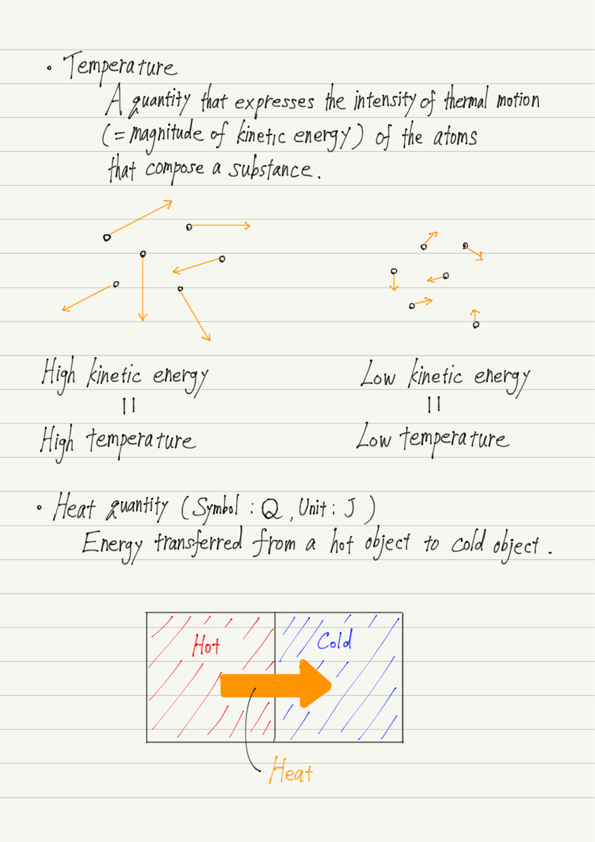 • Temperature
A quantity that expresses the intensity of thermal motion
(= magnitude of kinetic energy) of the atoms
that compose a substance.
High kinetic energy
Low kinetic energy
||
||
High temperature
Low temperature
• Heat quantity (Symbol : Q, Unit : J)
Energy transferred from a hot object to cold object.
Hot
Cold
Heat